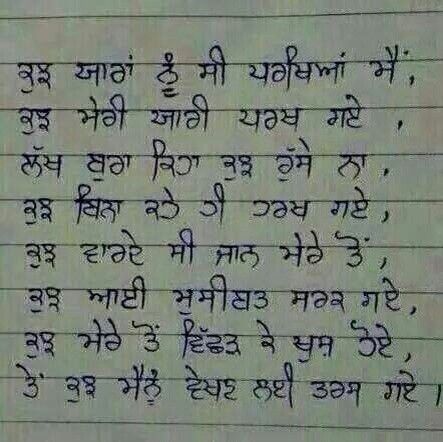 ਕੁਝ ਯਾਰਾਂ ਨੂੰ ਸੀ ਪਰਖਿਆਂ ਮੈਂ,
ਕੁਝ ਮੇਰੀ ਯਾਰੀ ਪਰਖ ਗਏ,
ਲੱਖ ਬੁਰਾ ਕਿਹਾ ਕੁਝ ਰੁੱਸੇ ਨਾ,
ਕੁਝ ਬਿਨਾ ਕਹੇ ਹੀ ਹਰਖ ਗਏ,
ਕੁਝ ਵਾਰਦੇ ਸੀ ਜਾਨ ਮੇਰੇ ਤੋਂ,
ਕੁਝ ਆਈ ਮੁਸੀਬਤ ਸਰਕ ਗਏ,
ਕੁਝ ਮੇਰੇ ਤੋਂ ਵਿੱਛੜ ਕੇ ਖੁਸ਼ ਹੋਏ,
ਤੇਂ ਕੁਝ ਮੈਨੂੰ ਵੇਖਣ ਲਈ ਤਰਸ ਗਏ।